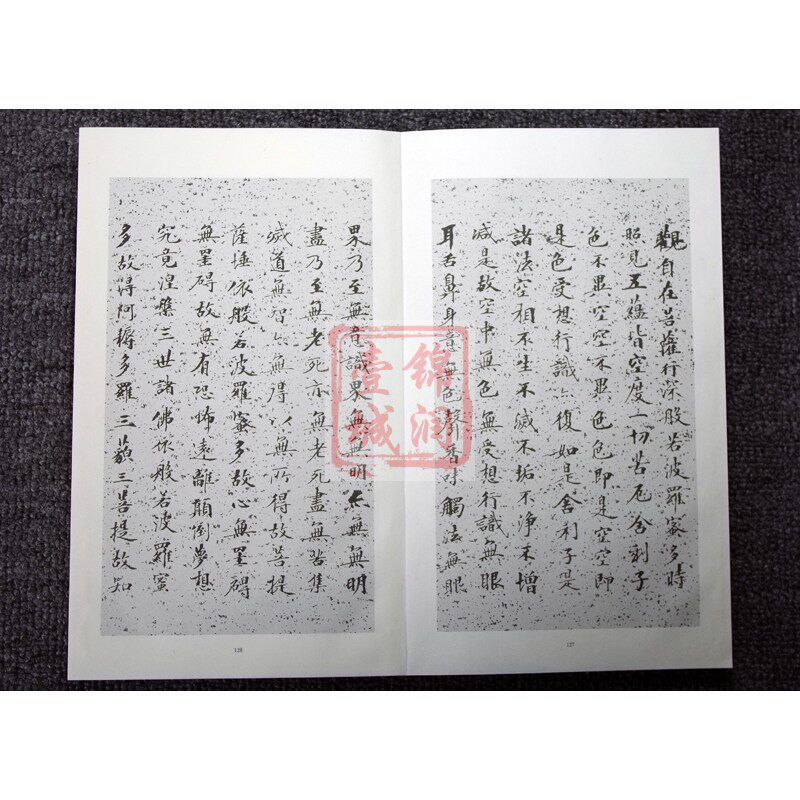 觀自在菩薩行深般若波羅蜜多時
照見五蘊皆空度一切苦厄舍利子
色不異空空不異色色即是空空即
是色受想行識亦復如是舍利子是
諸法空相不生不滅不垢不淨不增
減是故空中無色無受想行識無眼
耳舌鼻身意無色聲香味觸法無眼
127
界乃至無意識界無無明亦無無明
盡乃至無老死亦無老死盡無苦集
滅道無智亦無得以無所得故菩提
薩埵依般若波羅蜜多故心無罣礙
無罣礙故無有恐怖遠離顛倒夢想
究竟涅槃三世諸佛依般若波羅蜜
多故得阿耨多羅三藐三菩提故知
128
锦润
壹城